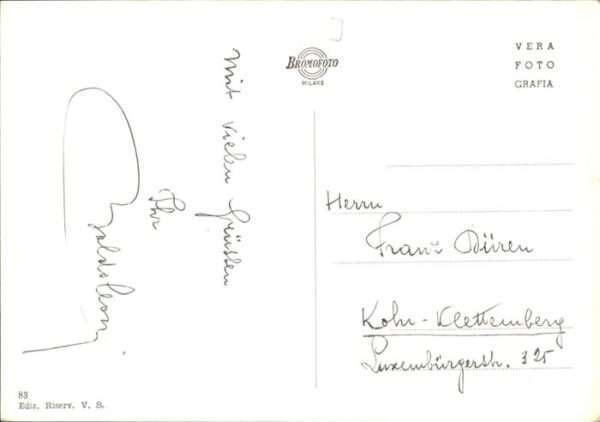 Mit vielen Grüssen
Ihr
BROMOFOTO
MILANO
VERA
FOTO
GRAFIA
Herrn
Franz Düren
Kohn-Klettemberg
Luxemburgerstr. 325
83
Ediz. Riserv. V. S.